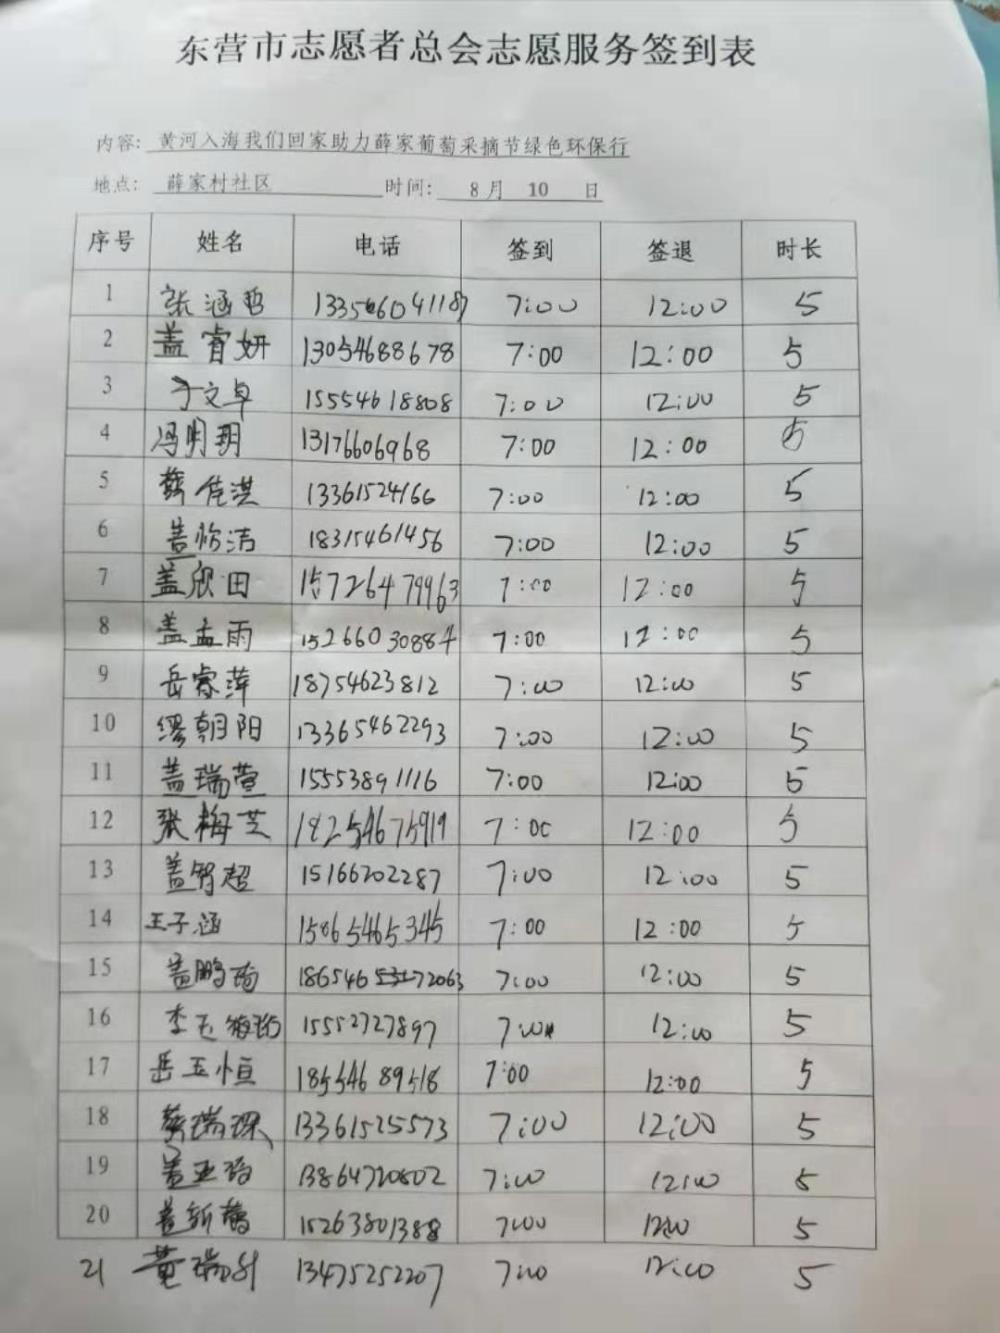 东营市志愿者总会志愿服务签到表
内容: 黄河入海我们回家助力薛家葡萄采摘节绿色环保行
地点: 薛家村社区 时间: 8 月 10 日
序号 姓名 电话 签到 签退 时长
1 张涵哲 7:00 12:00 5
2 盖睿妍 13054688678 7:00 12:00 5
3 于文卓 15554618808 7:00 12:00 5
4 冯明玥 13176606968 7:00 12:00 5
5 佳淇 13361524166 7:00 12:00 5
6 盖怡洁 18315461456 7:00 12:00 5
7 盖欣田 15726479963 7:00 12:00 5
8 盖孟雨 15266030884 7:00 12:00 5
9 岳睿萍 18754623812 7:00 12:00 5
10 缪朝阳 13365462293 7:00 12:00 5
11 盖瑞萱 15553891116 7:00 12:00 5
12 张梅芝 18254675919 7:00 12:00 5
13 盖智超 15166202287 7:00 12:00 5
14 王子涵 15865465345 7:00 12:00 5
15 盖鹏 7:00 12:00 5
16 李玉 15552727897 7:00 12:00 5
17 岳玉恒 18554689518 7:00 12:00 5
18 瑞琛 13361525573 7:00 12:00 5
19 盖亚 13864720802 7:00 12:00 5
20 盖新 15263801388 7:00 12:00 5
21 黄瑞 13475252207 7:00 12:00 5